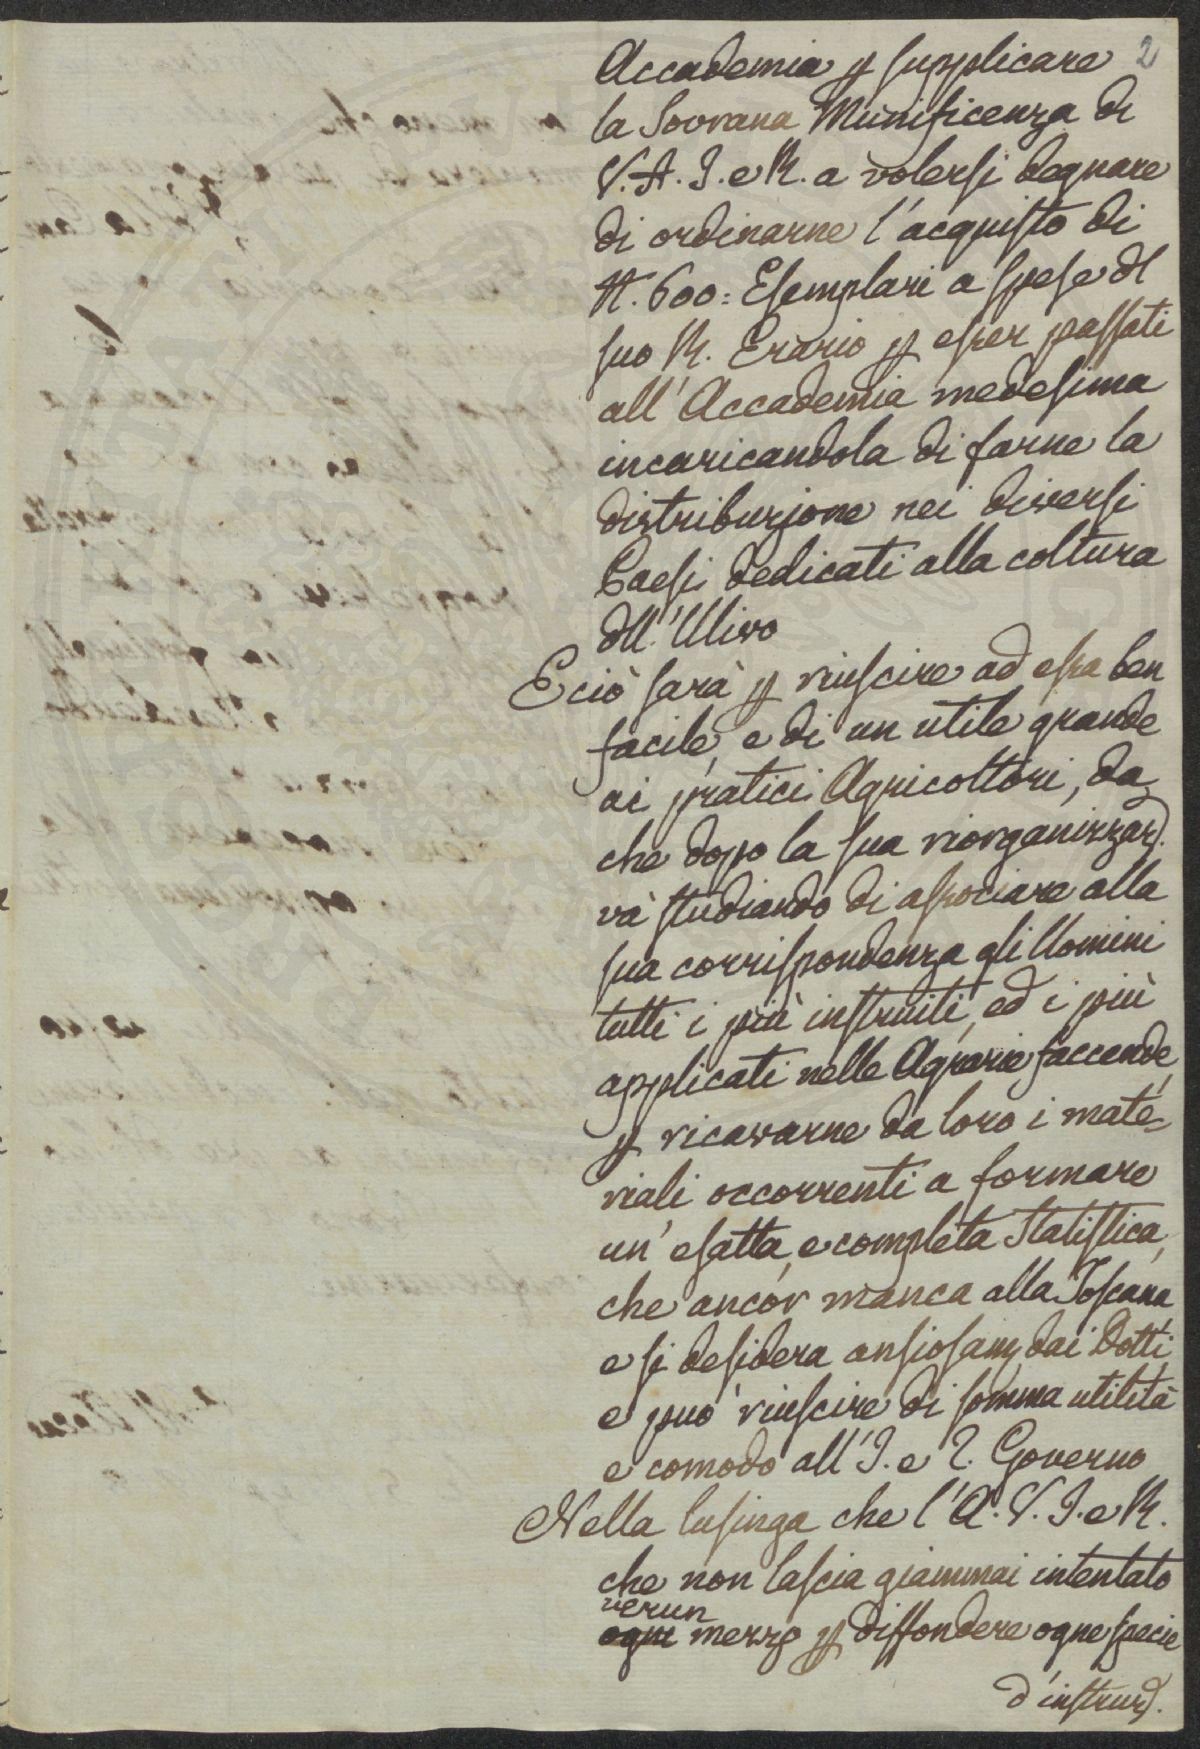 2
Accademia p supplicare
la Sovrana Munificenza di
V. A. I. e R. a volersi degnare
di ordinarne l'acquisto di
N. 600: Esemplari a spese dl
suo R. Erario p esser passati
all'Accademia medesima
incaricandola di farne la
distribuzione nei diversi
Paesi dedicati alla coltura
dll'Ulivo
E ciò sarà p riuscire ad essa ben
facile, e di un utile grande
ai pratici Agricoltori, da
che dopo la sua riorganizzaz.
và studiando di associare alla
sua corrispondenza gli Uomini
tutti i più instruiti, ed i più
applicati nelle Agrarie faccende,
p ricavarne da loro i mate=
riali occorrenti a formare
un'esatta, e completa Statistica,
che ancor manca alla Toscana
e si desidera ansiosam. dai Dotti,
e può riuscire di somma utilità
e comodo all'I. e R. Governo
Nella lusinga che l'A. V. I. e R.
che non lascia giammai intentato
verun
ogni mezzo p diffondere ogne specie
d'instruz.